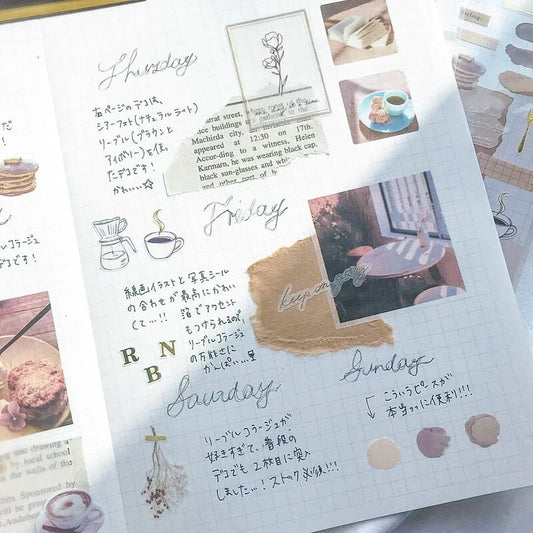 Thursday
右ページのデコは、
シアーフォト(ナチュラルライト)
リーブル(ブラウンと
アイボリー)を使っ
たデコです!
かわ
urat street, where
ace buildings are gathered in the
Machida city, an invisible
appeared at 12:30 on 17th.
Accor-ding to a witness, Helen
Karmarn, he was wearing black cap,
black sun-glasses and whit
and other part of b
だ
!
リーブルコラージュ
デコです!
Friday
線画イラストと写真シール
の合わせが最高にかわい
くて...!! 箔でアクセント
もつけられるので、
リーブルコラージュ
の万能さに
かんぱい...
keep on going
R N
B
Saturday
リーブルコラージュが
好きすぎて、普段の
デコでも2枚目に突入
しました...! ストック必須!!!
Sunday
こういうピースが
本当っっに便利!!!
ing and drawing a
by local school
the walls of the
bits Sponsored by
will be pre
Audobon